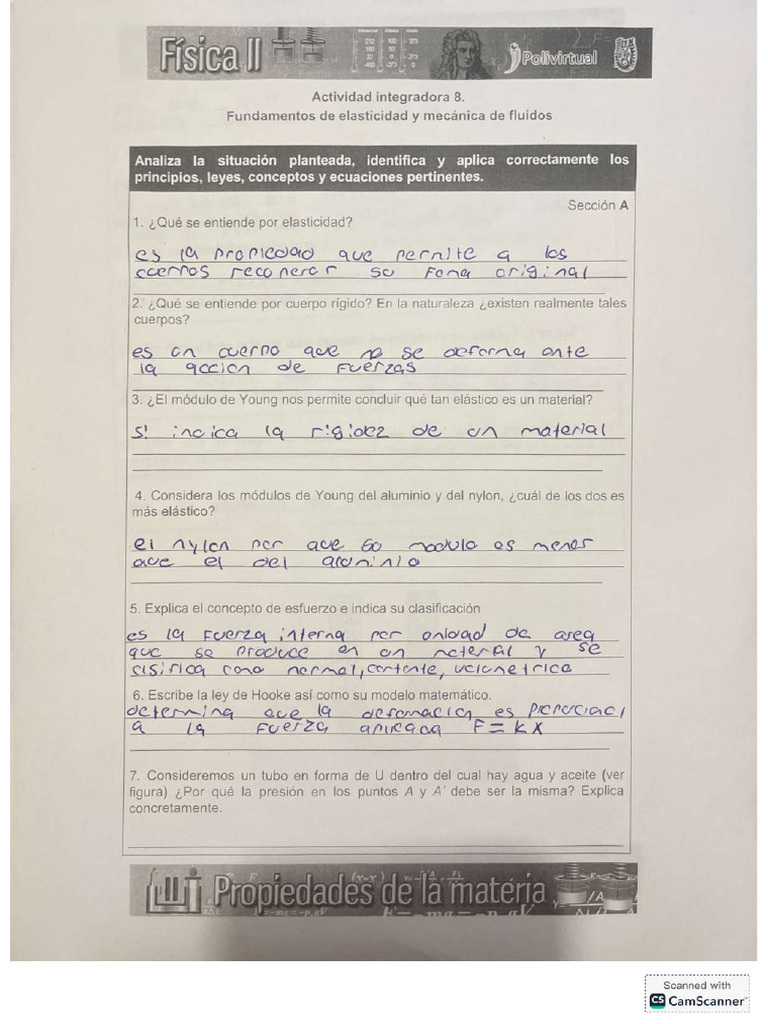 Física II
Polivirtual
Actividad integradora 8.
Fundamentos de elasticidad y mecánica de fluidos
Analiza la situación planteada, identifica y aplica correctamente los
principios, leyes, conceptos y ecuaciones pertinentes.
Sección A
1. ¿Qué se entiende por elasticidad?
es la propiedad que permite a los
cuerpos recoperar su foma original
2. ¿Qué se entiende por cuerpo rígido? En la naturaleza ¿existen realmente tales
cuerpos?
es un cuerpo que no se deforma ante
la accion de fuerzas
3. ¿El módulo de Young nos permite concluir qué tan elástico es un material?
si indica la rigidez de un material
4. Considera los módulos de Young del aluminio y del nylon, ¿cuál de los dos es
más elástico?
el nylon por que so modulo es menor
que el del aluminio
5. Explica el concepto de esfuerzo e indica su clasificación
es la fuerza interna por unidad de area
que se produce en un material y se
como normal, cortante, volumetrica
6. Escribe la ley de Hooke así como su modelo matemático.
determina que la deformacion es proporcional
a la fuerza aplicada F = kx
7. Consideremos un tubo en forma de U dentro del cual hay agua y aceite (ver
figura) ¿Por qué la presión en los puntos A y A' debe ser la misma? Explica
concretamente.
Propiedades de la materia
Scanned with
CS CamScanner